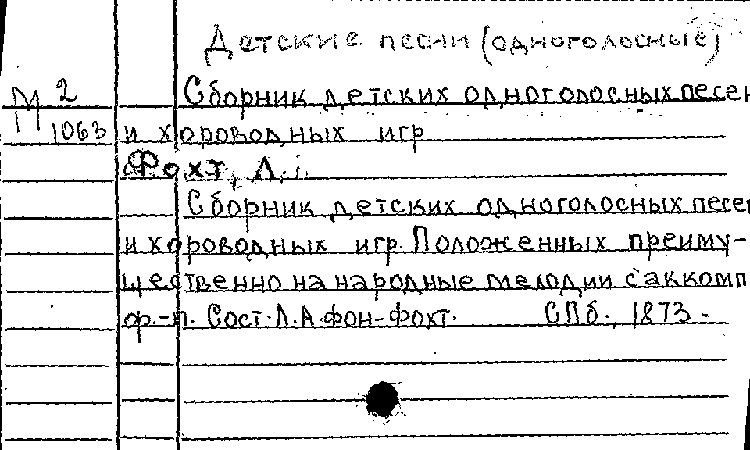 Детские песни (одноголосные)
М 2
1063
Сборник детских одноголосных песен
и хороводных игр
Фохт, Л.
Сборник детских одноголосных песен
и хороводных игр. Положенных преиму-
щественно на народные мелодии с аккомп
ф.-п. Сост. Л.А. фон-Фохт. СПб., 1873.-